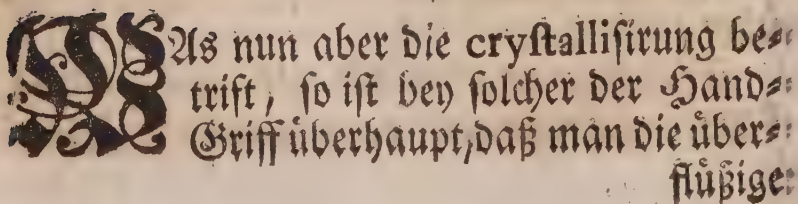 WAs nun aber die crystallisirung be-
trift, so ist bey solcher der Hand-
Griff überhaupt, daß man die über-
flüßige